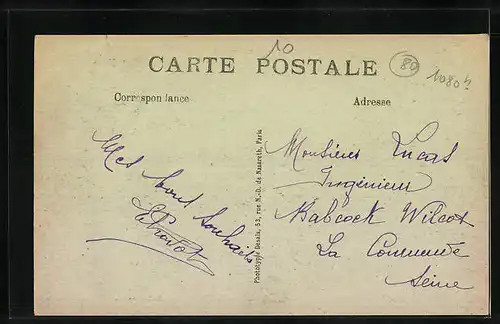 10
80
1080 h
CARTE POSTALE
Correspondance
Adresse
Mes bons souhaits
Phototypie Desaix, 53, rue N.-D. de Nazareth, Paris
Monsieur Lucas
Ingénieur
Babcock Wilcot
La Courneuve
Seine